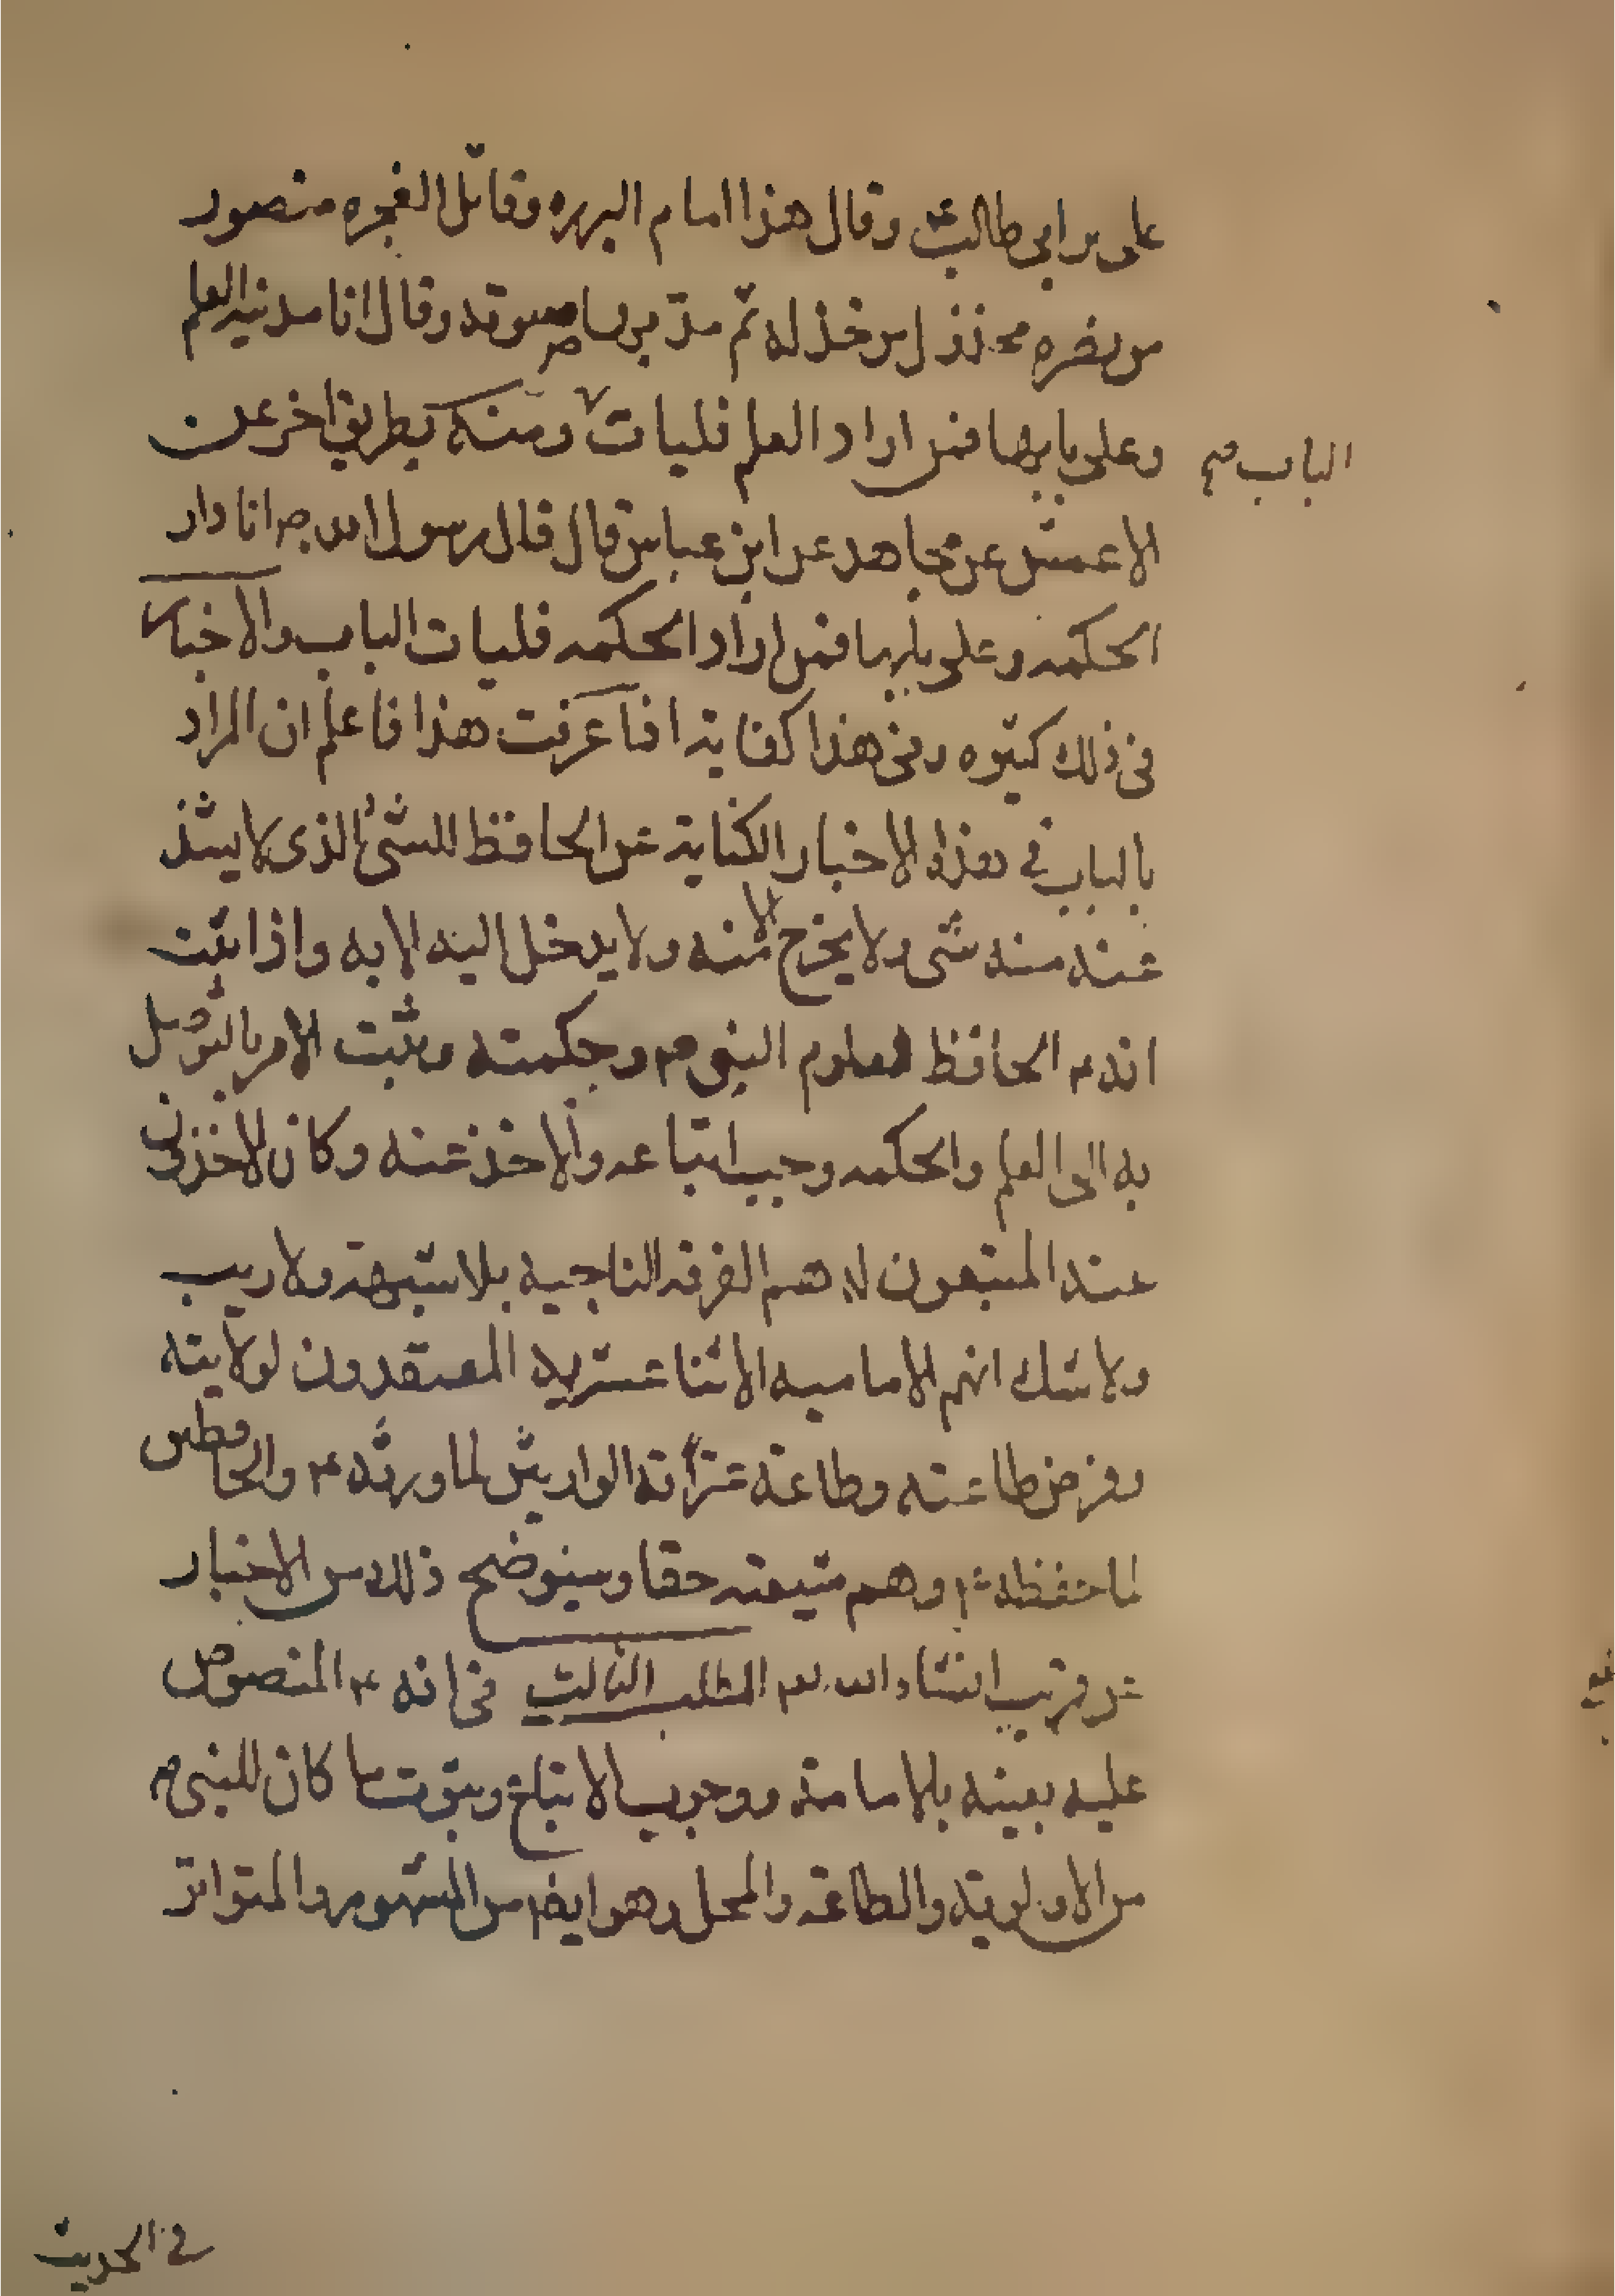 على بن ابي طالب ع وقال هذا امام البرره وقاتل الفجره منصور
من نصره مخذذل من خذله ثم مد بها ص صوته وقال انا مدينه العلم
وعلى بابها فمن اراد العلم فليات ومنه بطريق اخر عن
الباب صح
الاعمش عن مجاهد عن ابن عباس قال قال رسول الله ص انا دار
الحكمه وعلى بابها فمن اراد الحكمه فليات الباب والاخبار
في ذلك كثيره وفى هذا كفاية اذا عرفت هذا فاعلم ان المراد
بالباب في هذه الاخبار الكناية عن الحافظ للشئ الذى لا يشذ
عنه منه شى ولا يخرج الا منه ولا يدخل اليه الا به واذا ثبت
انه ع الحافظ لعلوم النبى ص وحكمته وثبت الامر بالتوصل
به الى العلم والحكمه وجب اتباعه والاخذ عنه وكان الاخذون
عنه المتبعون له هم الفرقه الناجيه بلا شبهة ولا ريب
ولا شك انهم الاماميه الاثنا عشريه المعتقدون لولايته
وفرض طاعته وطاعة عترته الوارثين لما ورثه ع والحافظين
لما حفظه ع وهم شيعته حقا وسيوضح ذلك من الاخبار
عن قريب انشاء الله تعم المطلب الثالث فى انه ع المنصوص
عليه بعينه بالامامة ووجوب الاتباع وثبوت ما كان للنبى ص
من الاولوية والطاعة والمحل وهو ايضا من المشهور والمتواتر
في الحديث